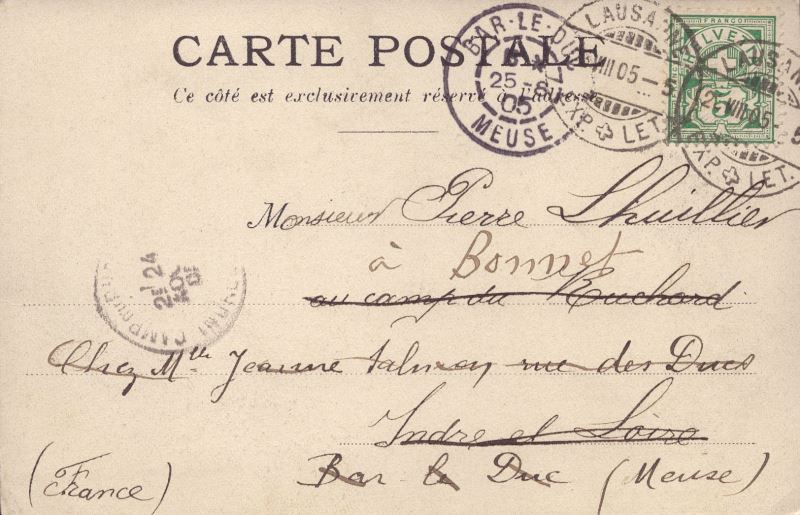 CARTE POSTALE
Ce côté est exclusivement réservé à l'adresse
BAR-LE-DUC
25 -8
05
MEUSE
LAUSANNE
VIII 05 - 5
EXP. LET.
FRANCO
HELVETIA
5
LAUSANNE
VIII 05
5
EXP. LET.
Monsieur Pierre Lhuillier
à Bonnet
au camp du Ruchard
2E 24
AOUT
05
Chez Mlle Jeanne Salmon rue des Ducs
Indre et Loire
Bar le Duc (Meuse)
(France)